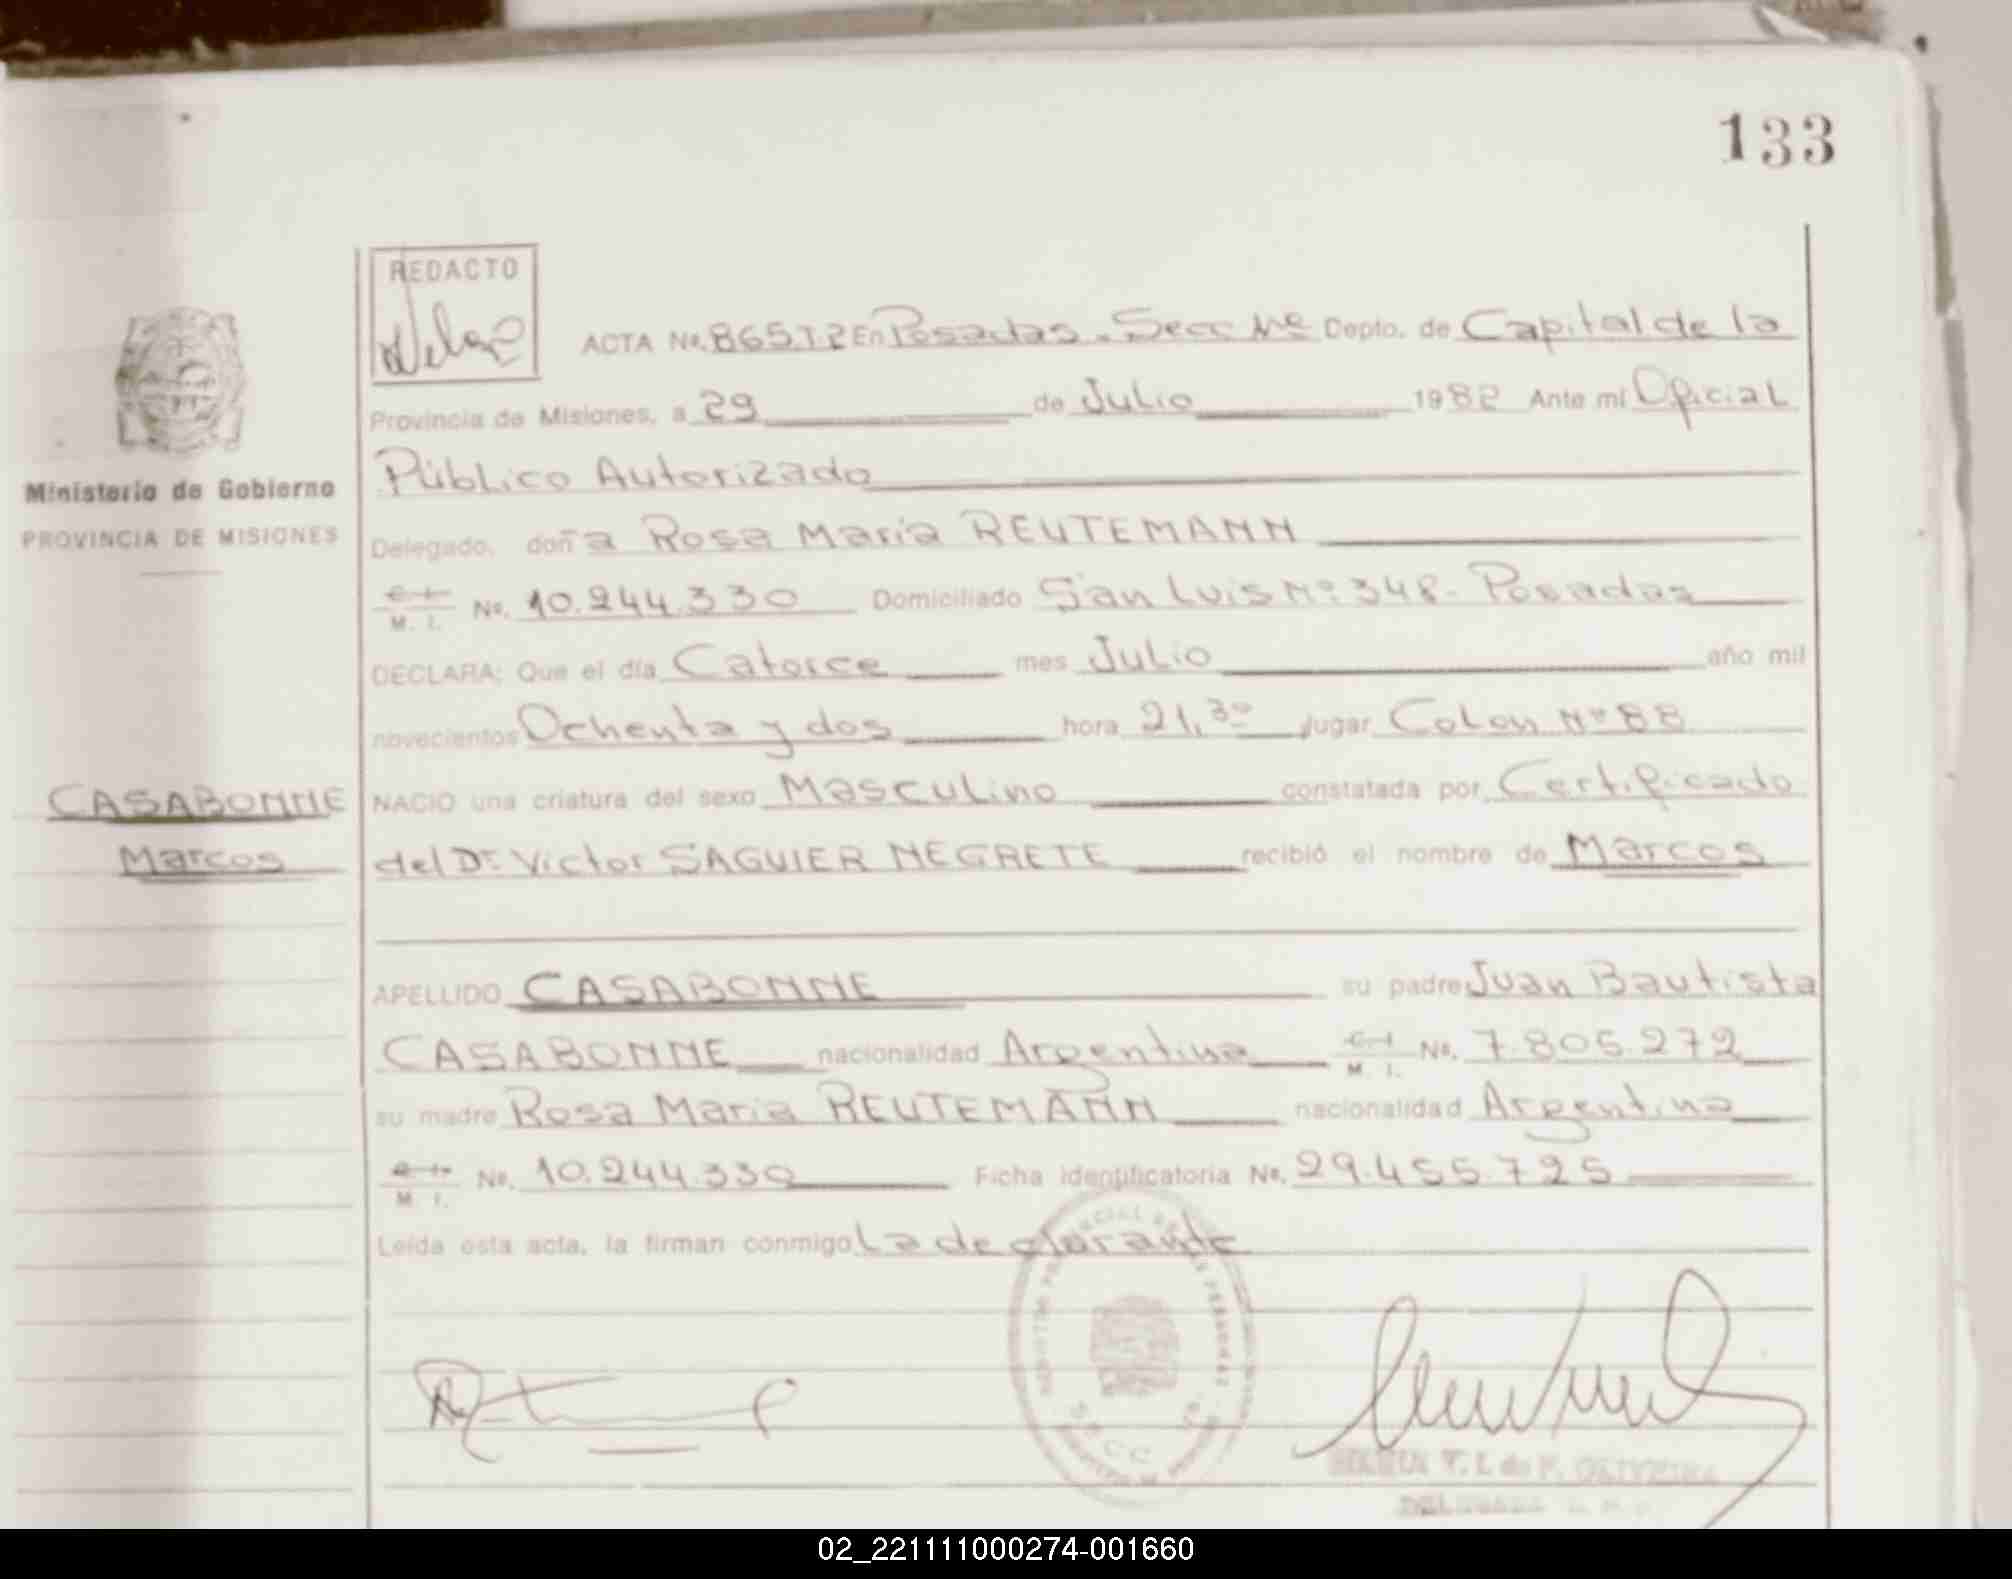 133
REDACTO
ACTA No. 865.T.2 En Posadas. Secc 1ra Depto. de Capital de la
Provincia de Misiones, a 29 de Julio 1982 Ante mi Oficial
Público Autorizado
Ministerio de Gobierno
PROVINCIA DE MISIONES
Delegado, doña Rosa María REUTEMANN
M. I. No. 10.244.330 Domiciliado San Luis Nº 348 - Posadas
DECLARA: Que el día Catorce mes Julio año mil
novecientos Ochenta y dos hora 21,30 lugar Colon Nº 88
CASABONNE
NACIO una criatura del sexo Masculino constatada por Certificado
Marcos
del Dr. Victor SAGUIER NEGRETE recibió el nombre de Marcos
APELLIDO CASABONNE su padre Juan Bautista
CASABONNE nacionalidad Argentina M. I. No. 7.805.272
su madre Rosa Maria REUTEMANN nacionalidad Argentina
M. I. No. 10.244.330 Ficha identificatoria No. 29.455.725
Leída esta acta, la firman conmigo La declarante
V. I. de F. OLIVEIRA
02_221111000274-001660